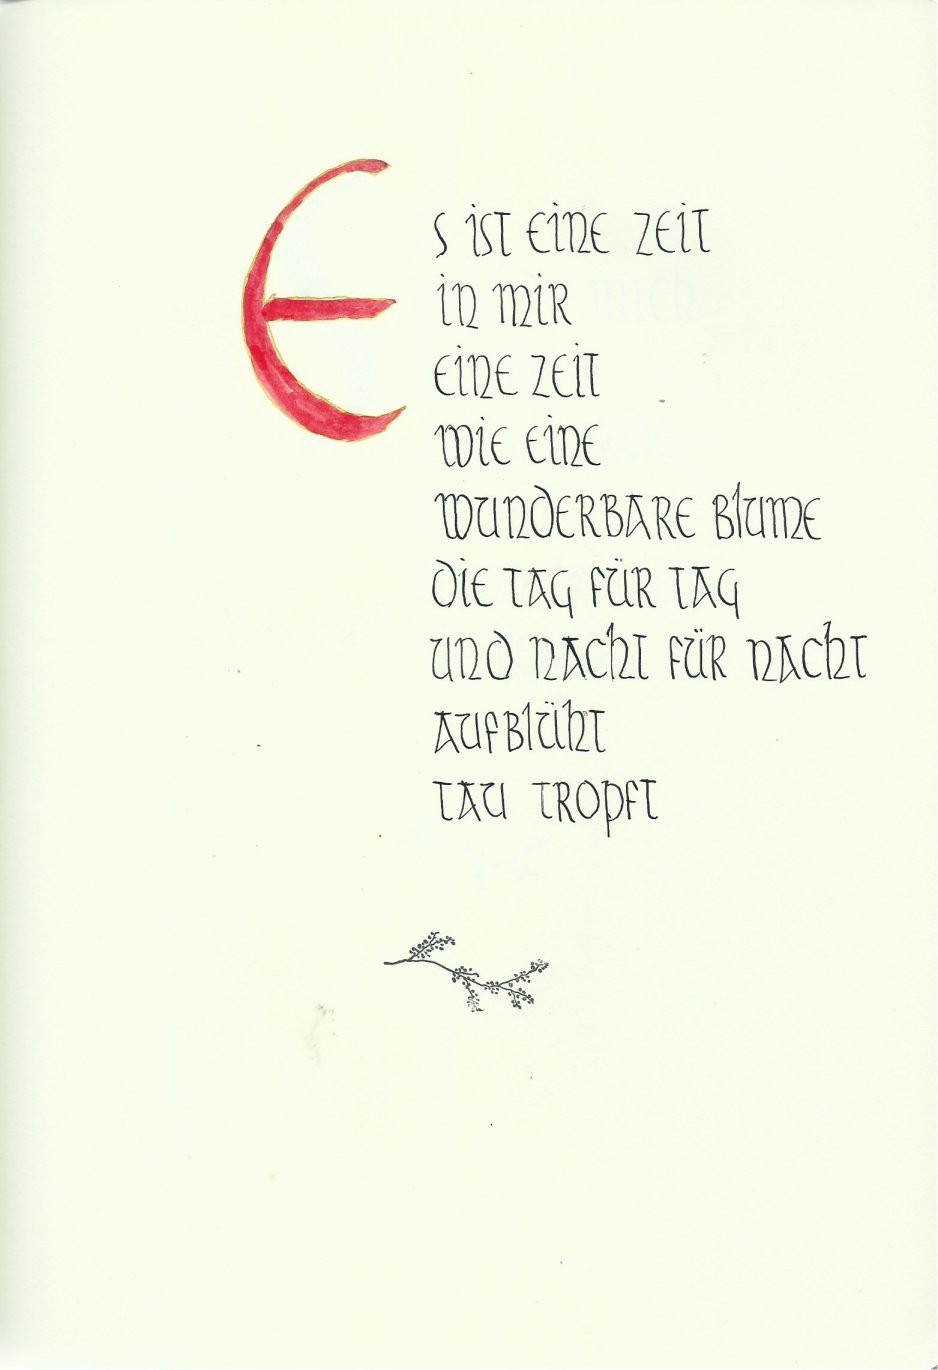 Es ist eine Zeit
in mir
eine Zeit
wie eine
wunderbare Blume
die Tag für Tag
und Nacht für Nacht
aufblüht
Tau tropft